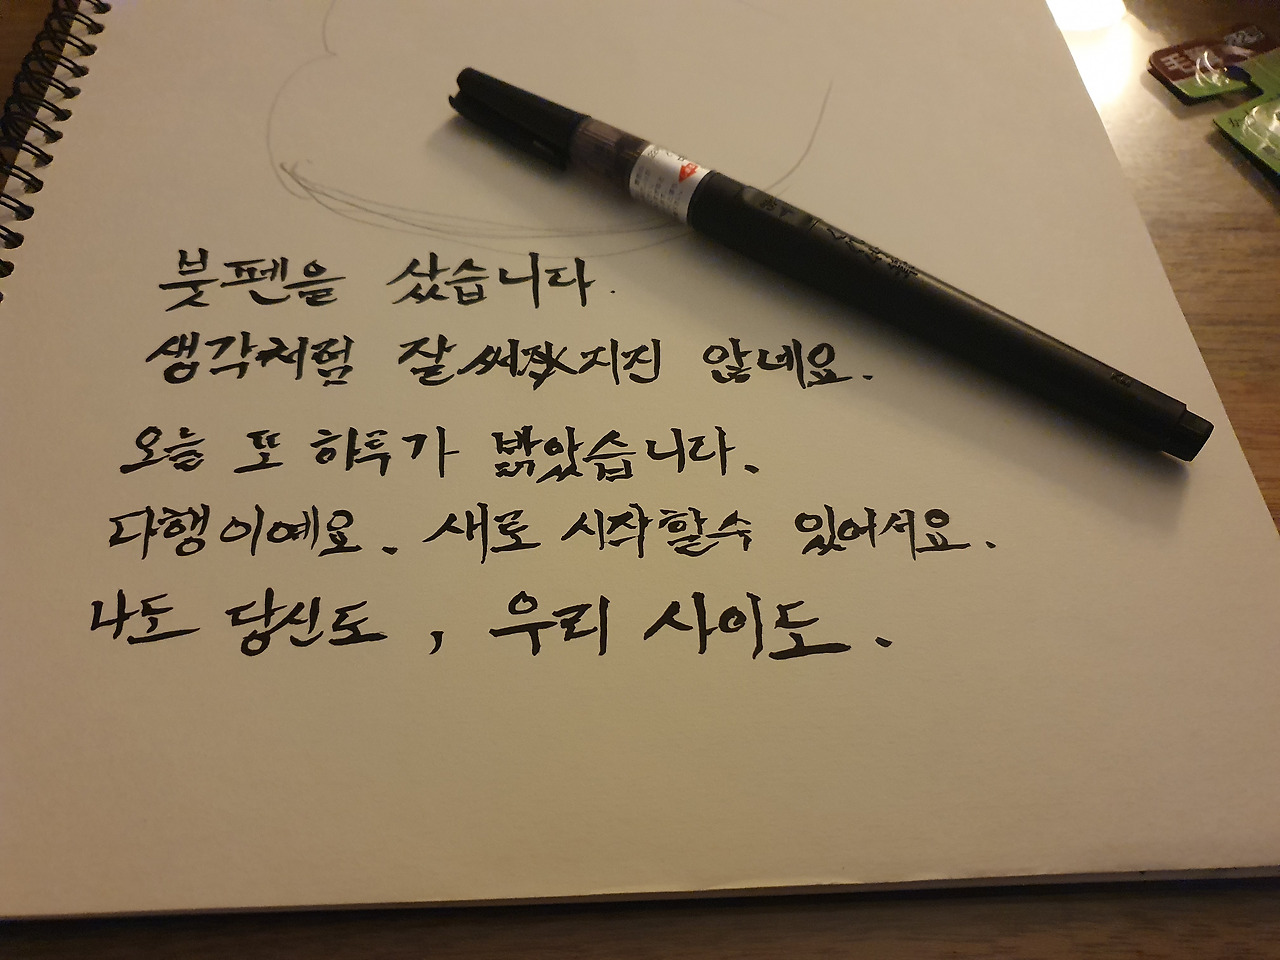 붓펜을 샀습니다.
생각처럼 잘 써지진 않네요.
오늘 또 하루가 밝았습니다.
다행이예요. 새로 시작할수 있어서요.
나도 당신도, 우리 사이도.